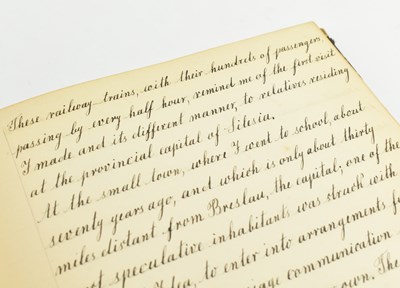 These railway trains, with their hundreds of passengers
passing by every half hour, remind me of the first visit
I made and its different manner, to relatives residing
at the provincial capital of Silesia.
At the small town, where I went to school, about
seventy years ago, and which is only about thirty
miles distant from Breslau, the capital; one of the
speculative inhabitants was struck with
Idea, to enter into arrangements
communication